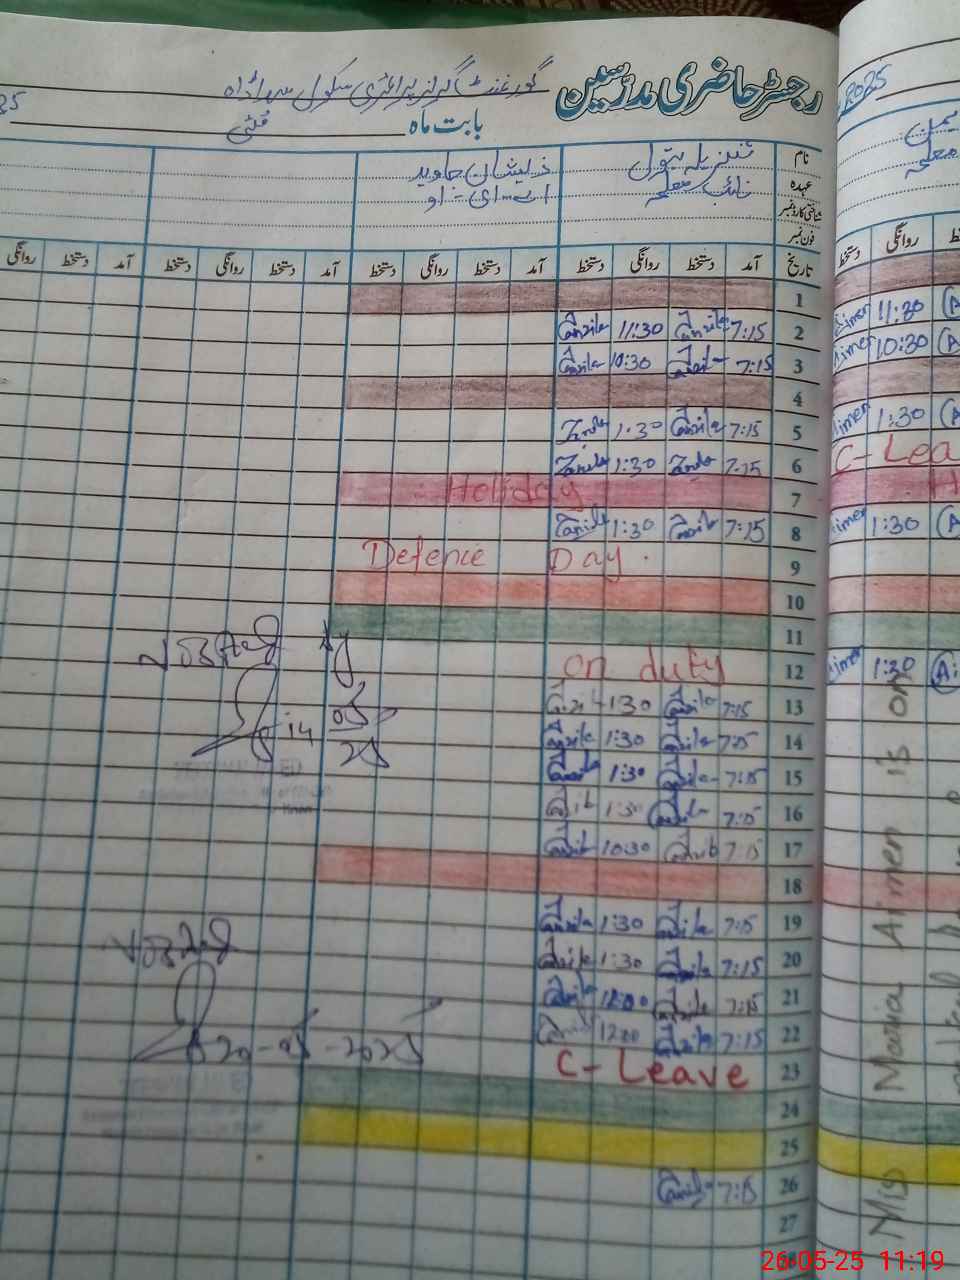 رجسٹر حاضری مدرسین گورنمنٹ گرلز پرائمری سکول
2025
بابت ماہ مئی
نام تنزیلہ بتول ذیشان جاوید
عہدہ نائب معلمہ
معلمہ
شناختی کارڈ نمبر
فون نمبر
تاریخ آمد دستخط روانگی دستخط آمد دستخط روانگی دستخط آمد دستخط روانگی دستخط آمد دستخط روانگی
1
2 7:15 Tanzila 11:30 Tanzila 11:30
3 7:15 Tanzila 10:30 Tanzila 10:30
4
5 7:15 Tanzila 1:30 Tanzila 1:30
6 7:15 Tanzila 1:30 Tanzila C-Lea
7 Holiday H
8 7:15 Tanzila 1:30 Tanzila 1:30
9 Defence Day.
10
11
12 on duty 1:30
13 7:15 Tanzila 1:30 Tanzila
14 7:15 Tanzila 1:30 Tanzila
15 7:15 Tanzila 1:30 Tanzila
16 7:15 Tanzila 1:30 Tanzila
17 7:15 Tanzila 10:30 Tanzila
18
19 7:15 Tanzila 1:30 Tanzila
20 7:15 Tanzila 1:30 Tanzila
21 7:15 Tanzila 12:00 Tanzila
22 7:15 Tanzila 12:00 Tanzila
23 C-Leave
24
25
26 7:15 Tanzila
27
Visited by
14 05 25
Visited
20-05-2025
Miss Maria Aimen is on
26-05-25 11:19